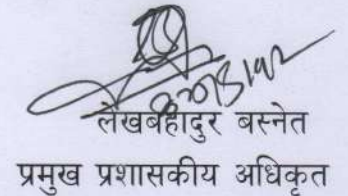 लेखबहादुर बस्नेत
प्रमुख प्रशासकीय अधिकृत